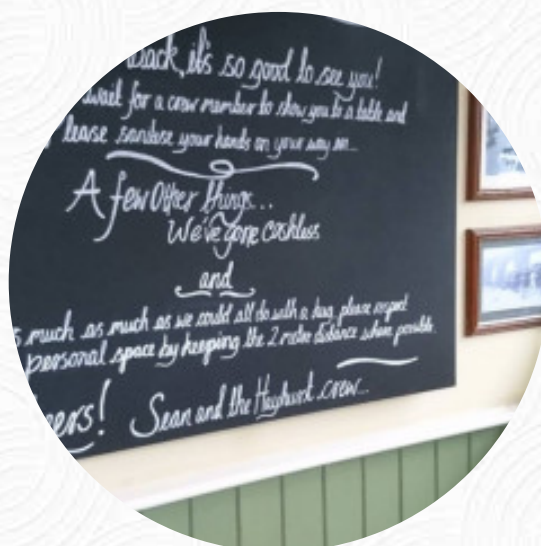 back, it's so good to see you!
wait for a crew member to show you to a table and
lease sanitise your hands on your way in...
A few Other things...
We've gone cashless
and
s much as much as we could all do with a hug, please respect
personal space by keeping the 2 metre distance where possible.
eers! Sean and the Hayhurst crew...